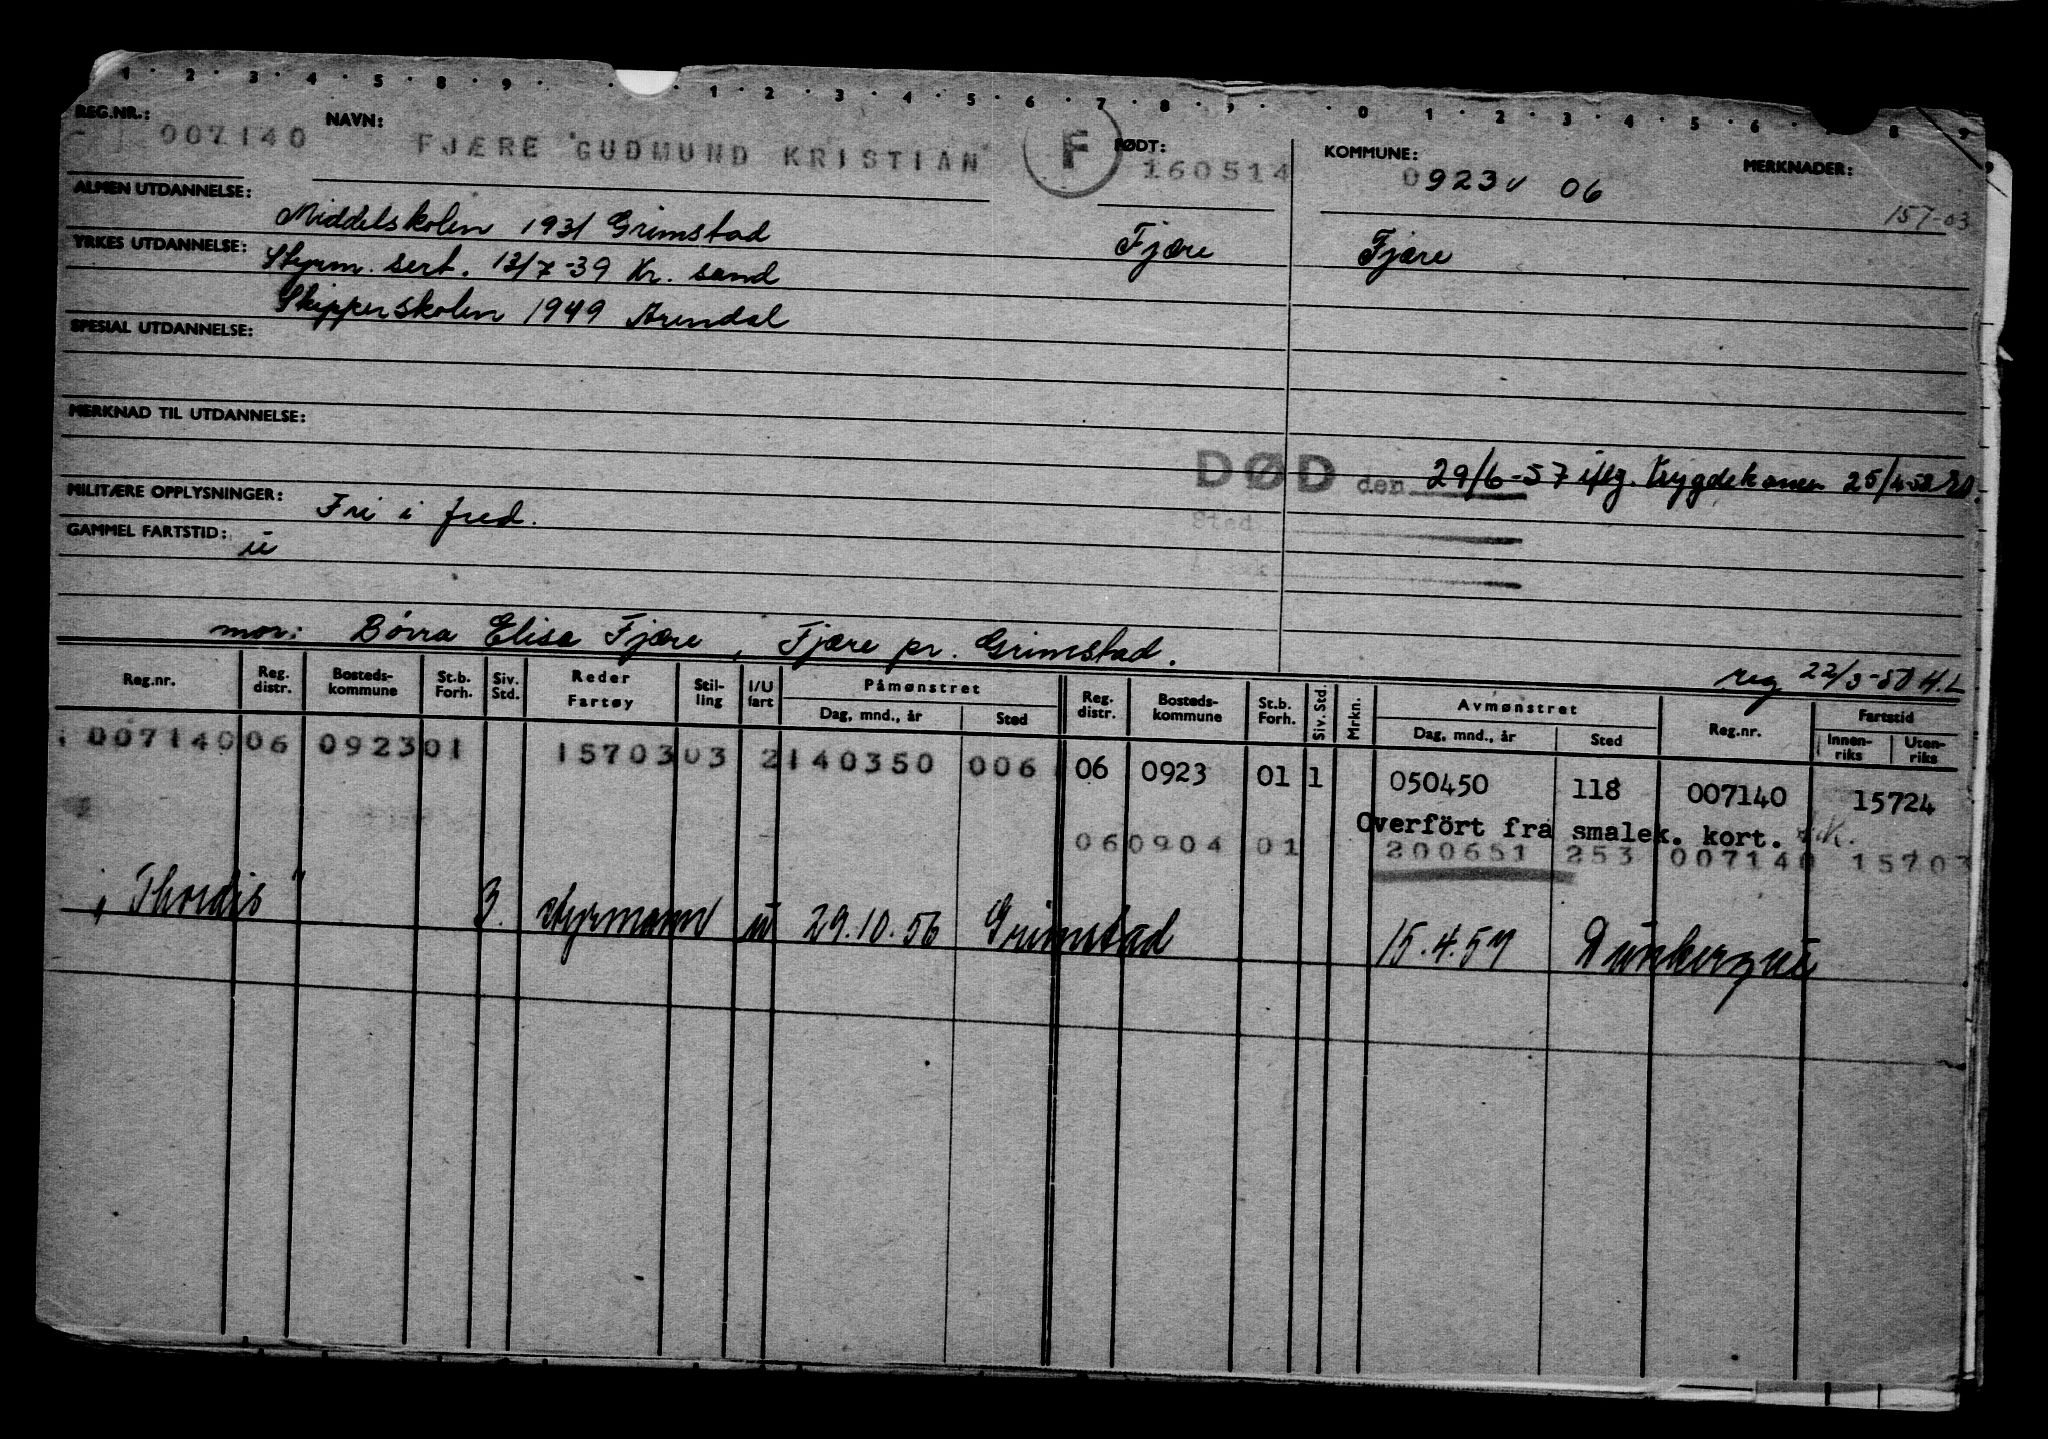 1 · 2 · 3 · 4 · 5 · 8 · 9 · · 1 · 2 · 3 · 4 · 5 · 6 · 7 · 8 · 9 · · 0 · 1 · 2 · 3 · 4 · 5 · 6 · 8 9
REG.NR.: 007140 NAVN: FJÆRE GUDMUND KRISTIAN F FØDT: 160514 KOMMUNE: 0923 06 MERKNADER:
157-03
ALMEN UTDANNELSE: Middelskolen 1931 Grimstad Fjære Fjære
YRKES UTDANNELSE: Styrm. sert. 13/7-39 Kr. sand
Skipperskolen 1949 Arendal
SPESIAL UTDANNELSE:
MERKNAD TIL UTDANNELSE:
DØD den 29/6-57 iflg. trygdekonen
MILITÆRE OPPLYSNINGER: Fri i fred.
Sted
GAMMEL FARTSTID: u
mor: Børra Elise Fjære, Fjære pr. Grimstad.
reg 22/3-50 H.L
Reg.nr. Reg. distr. Bosteds-kommune St.b. Forh. Siv. Std. Reder Fartøy Stil-ling I/U fart Påmønstret Dag, mnd., år Sted Reg. distr. Bosteds-kommune St.b. Forh. Siv. Std. Mrkn. Avmønstret Dag, mnd., år Sted Reg.nr. Fartstid Innen-riks Uten-riks
007140 06 0923 01 15703 03 2 140350 006 06 0923 01 1 050450 118 007140 15724
Overført fra smalek. kort.
060904 01 200651 253 007140 15703
"Thordis" 3. styrmann u 29.10.56 Grimstad 15.4.57 Dunkerque